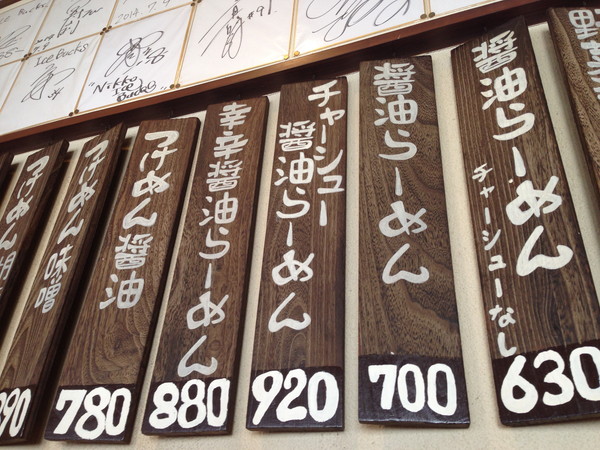 Ice Bucks
2014.7.9
#91
Ice Bucks
"Nikko
Ice
Bucks"
野菜
醤油らーめん
チャーシューなし
630
醤油らーめん
700
チャーシュー
醤油らーめん
920
辛辛醤油らーめん
880
つけめん醤油
780
つけめん味噌
90
つけめん